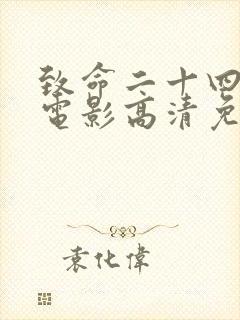 致命二十四
電影高清免
袁化偉